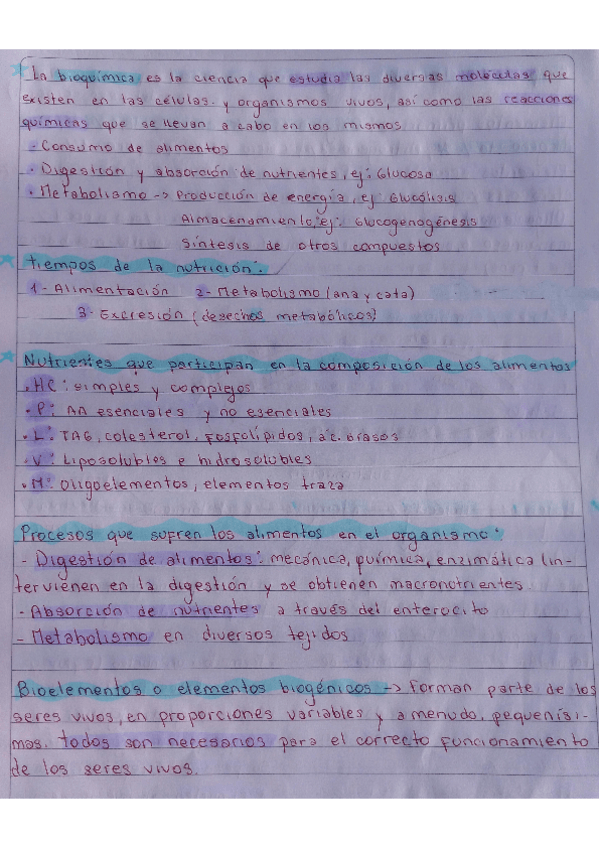 La bioquímica es la ciencia que estudia las diversas moléculas que
existen en las células y organismos vivos, así como las reacciones
químicas que se llevan a cabo en los mismos
- Consumo de alimentos
- Digestión y absorción de nutrientes, ej: Glucosa
- Metabolismo -> Producción de energía, ej Glucólisis
Almacenamiento, ej: Glucogenogénesis
Síntesis de otros compuestos
Tiempos de la nutrición:
1- Alimentación 2- Metabolismo (ana y cata)
3- Excresión (desechos metabólicos)
Nutrientes que participan en la composición de los alimentos
. HC: simples y complejos
. P: AA esenciales y no esenciales
. L: TAG, colesterol, fosfolípidos, ác. grasos
. V: Liposolubles e hidrosolubles
. M: Oligoelementos, elementos traza
Procesos que sufren los alimentos en el organismo:
- Digestión de alimentos: mecánica, química, enzimática (in-
tervienen en la digestión y se obtienen macronutrientes.
- Absorción de nutrientes a través del enterocito
- Metabolismo en diversos tejidos
Bioelementos o elementos biogénicos -> Forman parte de los
seres vivos, en proporciones variables y a menudo, pequeñísi-
mas, todos son necesarios para el correcto funcionamiento
de los seres vivos.